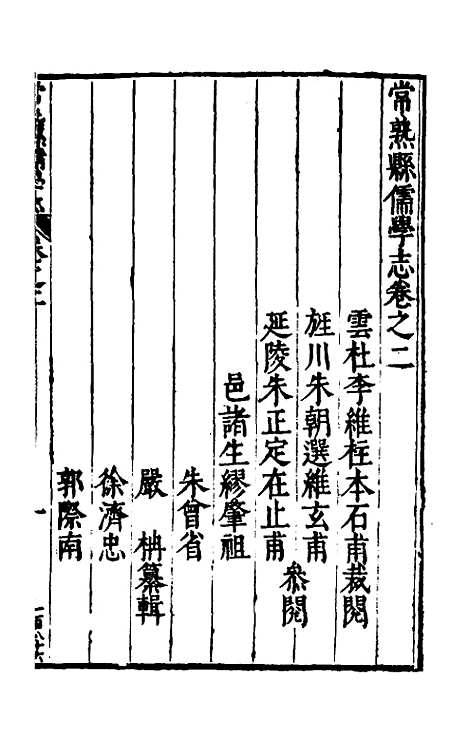 常熟縣儒學志卷之二
雲杜李維柱本石甫裁閱
旌川朱朝選維玄甫
延陵朱正定在止甫
叅閱
邑諸生繆肇祖
朱曾省
嚴 柟纂輯
徐濟忠
郭際南